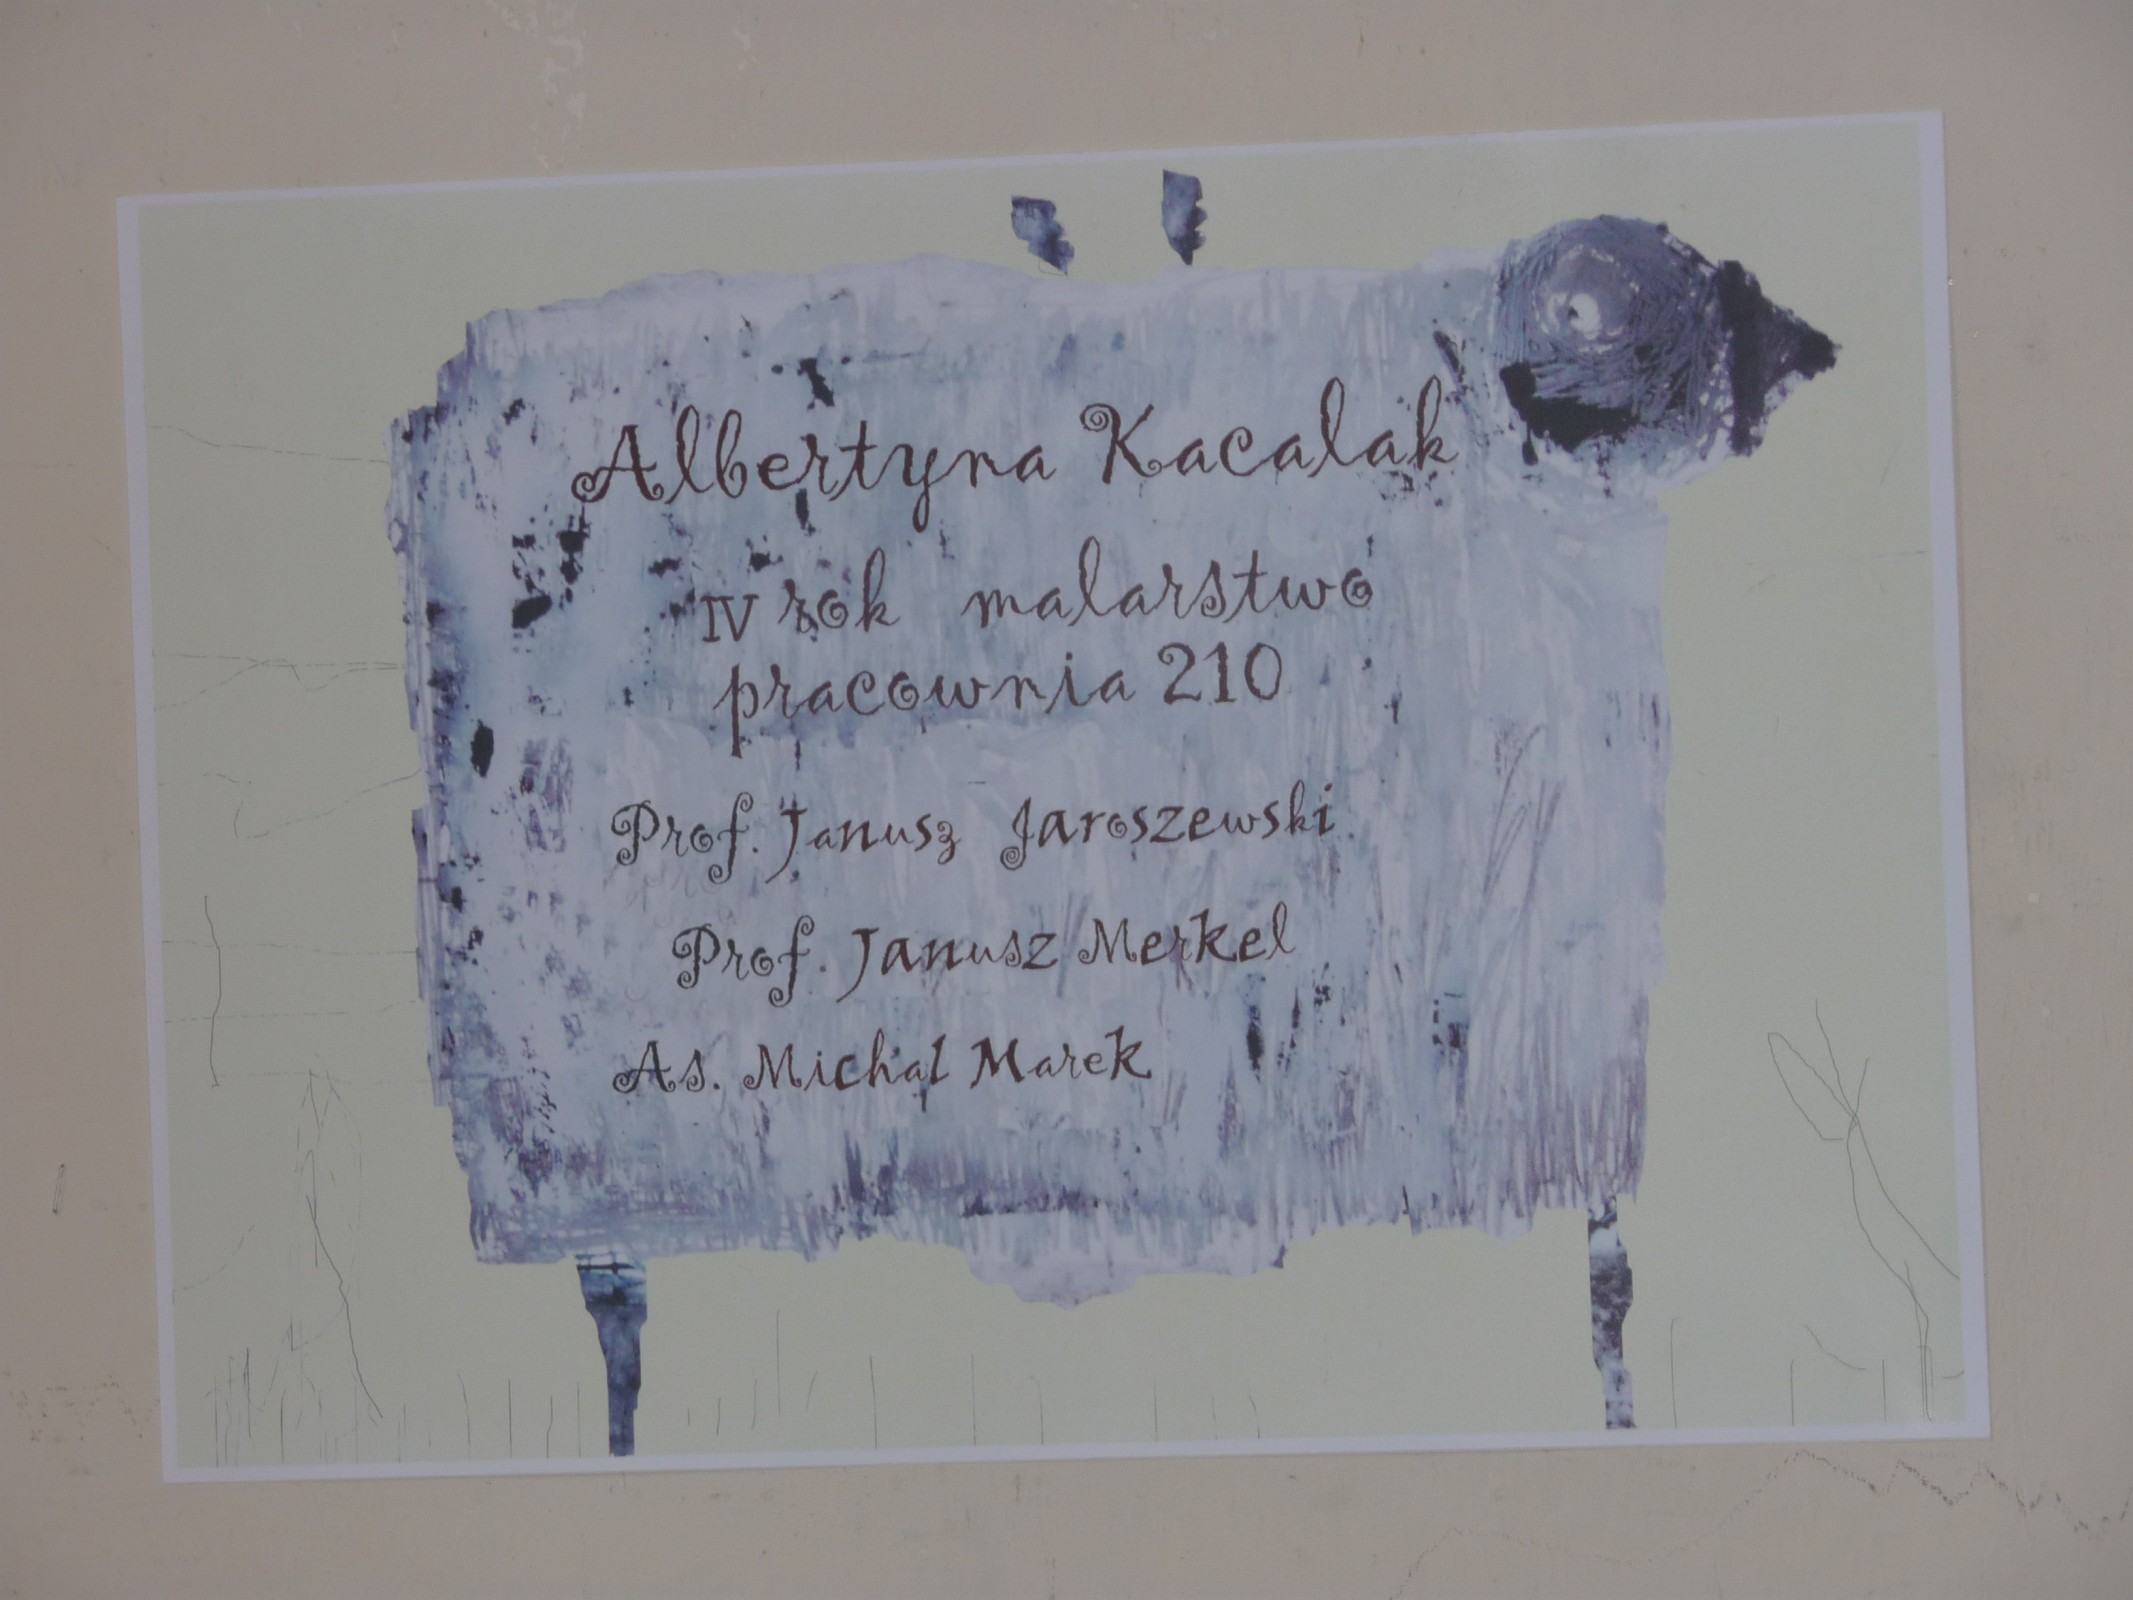 Albertyna Kacalak
IV rok malarstwo
pracownia 210
Prof. Janusz Jaroszewski
Prof. Janusz Merkel
As. Michal Marek